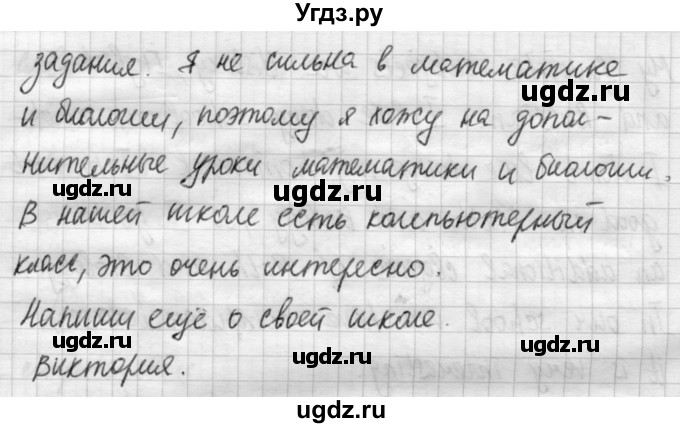 Угдз.ру
задания. Я не сильна в математике
и биологии, поэтому я хожу на допол-
нительные уроки математики и биологии.
В нашей школе есть компьютерный
класс, это очень интересно.
Напиши ещё о своей школе.
Виктория.
ugdz.ru
ugdz.ru
ugdz.ru
ugdz.ru
ugdz.ru
ugdz.ru
ugdz.ru
ugdz.ru
ugdz.ru